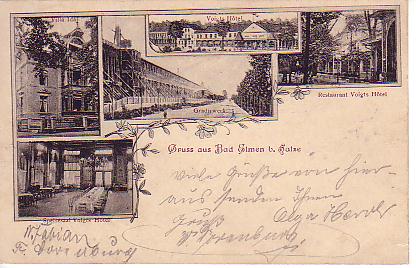 Villa Ida
Voigts Hôtel
Gradirwerk
Restaurant Voigts Hôtel
Speisesaal Voigts Hôtel
Gruss aus Bad Elmen b. Salze
Viele Grüße von hier
aus senden Ihnen
Gruß Olga